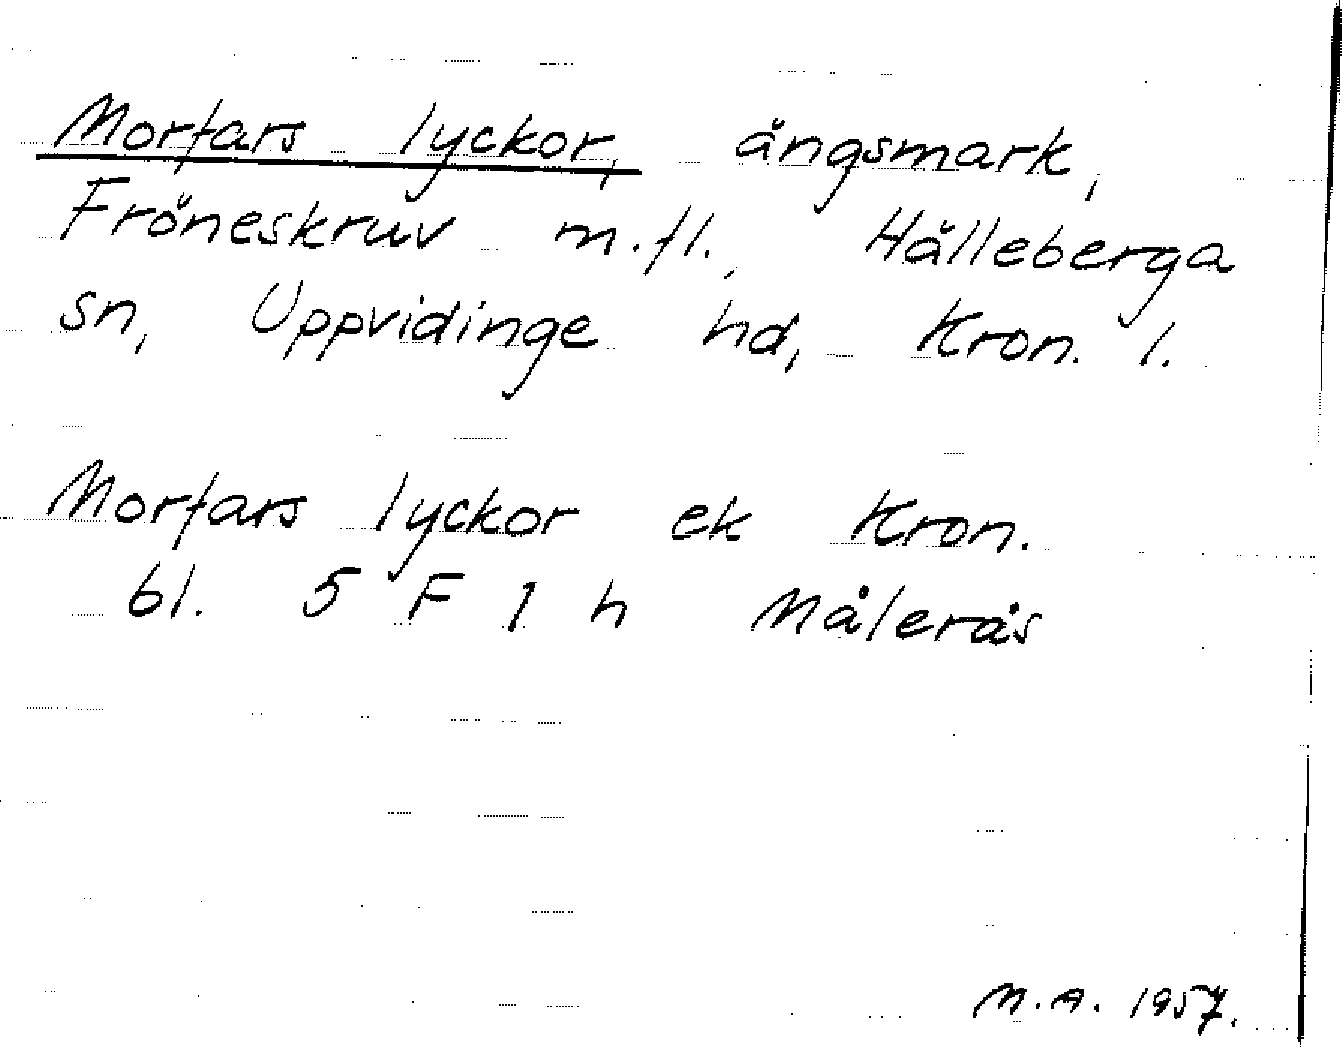 Morfars lyckor, ängsmark,
Fröneskruv m.fl., Hälleberga
sn, Uppvidinge hd, Kron. l.
Morfars lyckor ek Kron.
bl. 5 F 1 h Målerås
M.A. 1957.